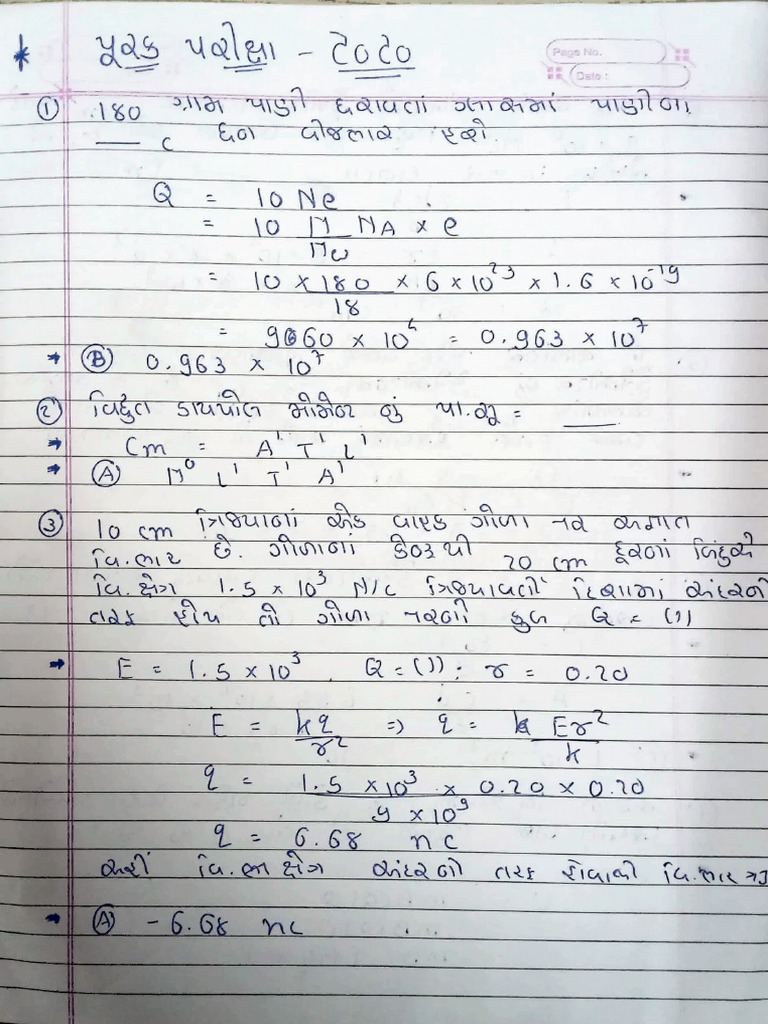 * પૂરક પરીક્ષા - ૨૦૨૦
Page No.
Date :
① 180 ગ્રામ પાણી ધરાવતાં ગ્લાસમાં પાણીના
___ C ધન વીજભાર હશે
Q = 10 Ne
= 10 M NA × e
Mω
= 10 × 180 × 6 × 10²³ × 1.6 × 10⁻¹⁹
18
= 9660 × 10⁴ = 0.963 × 10⁷
→ Ⓑ 0.963 × 10⁷
② વિદ્યુત ડાયપોલ મોમેન્ટ નું પા.સૂ = ___
→ Cm = A¹ T¹ L¹
→ Ⓐ M⁰ L¹ T¹ A¹
③ 10 cm ત્રિજ્યાનાં એક વાહક ગોળા પર અજ્ઞાત
વિ.ભાર છે. ગોળાનાં કેન્દ્રથી 20 cm દૂરનાં બિંદુએ
વિ.ક્ષેત્ર 1.5 × 10³ N/C ત્રિજ્યાવર્તી દિશામાં અંદરની
તરફ હોય તો ગોળા પરની કુલ Q = (?)
→ E = 1.5 × 10³, Q = (?) ; r = 0.20
E = kq ⇒ q = Er²
r² k
q = 1.5 × 10³ × 0.20 × 0.20
9 × 10⁹
q = 6.68 nc
અહીં વિ. ક્ષેત્ર અંદરની તરફ હોવાથી વિ.ભાર
→ Ⓐ -6.68 nc